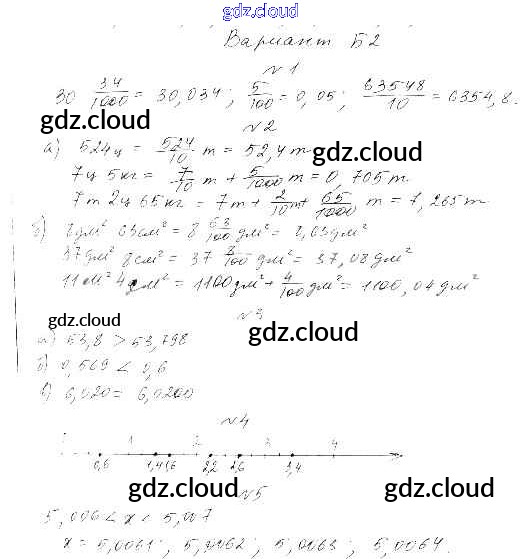 gdz.cloud
Вариант Б2
№1
30 34/1000 = 30,034; 5/100 = 0,05; 63548/10 = 6354,8.
gdz.cloud
№2
а) 524ц = 524/10 т = 52,4т
gdz.cloud
7ц 5кг = 7/10 т + 5/1000 т = 0,705т
7т 2ц 65кг = 7т + 2/10т + 65/1000 т = 7,265т
б) 8дм² 63см² = 8 63/100 дм² = 8,63дм²
37дм² 8см² = 37 8/100 дм² = 37,08дм²
11м² 4 дм² = 1100дм² + 4/100 дм² = 1100,04дм²
№3
gdz.cloud gdz.cloud
а) 53,8 > 53,798
б) 0,569 < 0,6
в) 6,020 = 6,0200
№4
1 2 3 4
0,6 1,4 1,6 2,2 2,6 3,4
gdz.cloud gdz.cloud
№5
5,006 < x < 5,007
x = 5,0061; 5,0062; 5,0063; 5,0064.
gdz.cloud gdz.cloud